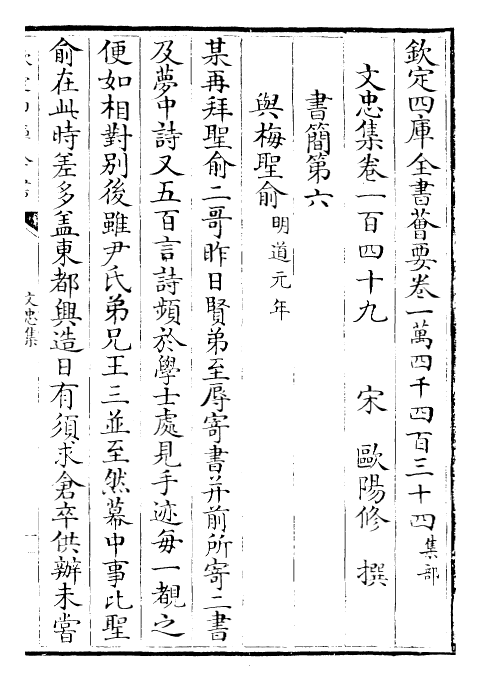 欽定四庫全書薈要卷一萬四千四百三十四集部
文忠集卷一百四十九 宋 歐陽修 撰
書簡第六
與梅聖俞明道元年
某再拜聖俞二哥昨日賢弟至辱寄書并前所寄二書
及夢中詩又五百言詩頻於學士處見手迹每一覩之
便如相對別後雖尹氏弟兄王三並至然幕中事比聖
俞在此時差多盖東都興造日有須求倉卒供辦未嘗
文忠集